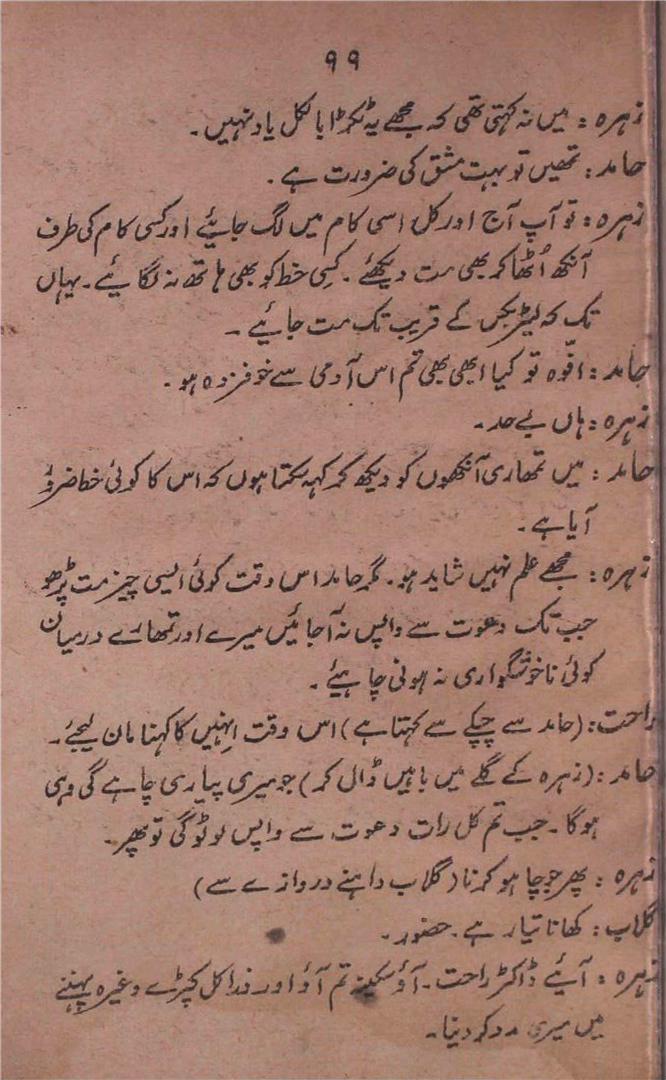 ۹۹
زہرہ : میں نہ کہتی تھی کہ مجھے یہ ٹکڑا بالکل یاد نہیں۔
حامد : تمھیں تو بہت مشق کی ضرورت ہے ۔
زہرہ : تو آپ آج اور کل اسی کام میں لگ جائیے اور کسی کام کی طرف
آنکھ اُٹھا کر بھی مت دیکھئے ۔ کسی خط کو بھی ہاتھ نہ لگائیے ۔ یہاں
تک کہ لیٹر بکس کے قریب تک مت جائیے ۔
حامد : افّوہ تو کیا ابھی بھی تم اس آدمی سے خوفزدہ ہو ۔
زہرہ : ہاں بے حد ۔
حامد : میں تمھاری آنکھوں کو دیکھ کر کہہ سکتا ہوں کہ اس کا کوئی خط ضرور
آیا ہے ۔
زہرہ : مجھے علم نہیں شاید ہو ۔ مگر حامد اس وقت کوئی ایسی چیز مت پڑھو
جب تک دعوت سے واپس نہ آجائیں میرے اور تمھارے درمیان
کوئی ناخوشگواری نہ ہونی چاہیئے ۔
راحت : (حامد سے چپکے سے کہتا ہے) اس وقت اِنہیں کا کہنا مان لیجئے ۔
حامد : (زہرہ کے گلے میں باہیں ڈال کر) جو میری پیاری چاہے گی وہی
ہوگا ۔ جب تم کل رات دعوت سے واپس لوٹو گی تو پھر ۔
زہرہ : پھر جو چاہو کرنا (گلاب داہنے دروازے سے)
گلاب : کھانا تیار ہے ۔ حضور ۔
زہرہ : آئیے ڈاکٹر راحت ۔ آؤ سکینہ تم آؤ اور ذرا کل کپڑے وغیرہ پہننے
میں میری مدد کر دینا ۔